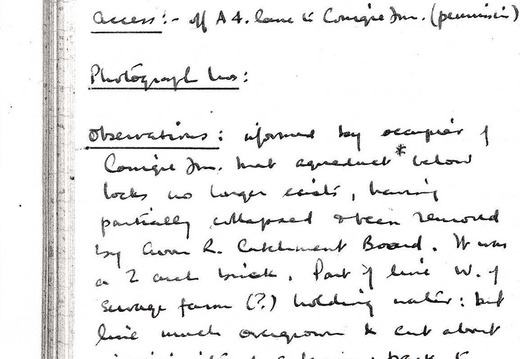 Access:- off A4. lane to Conigre Fm. (permission)
Photograph Nos:
Observations: informed by occupier of
Conigre Fm. that aqueduct* below
locks no longer exists, having
partially collapsed & been removed
by Avon R. Catchment Board. It was
a 2 arch brick. Part of line W. of
sewage farm (?) holding water: but
line much overgrown & cut about